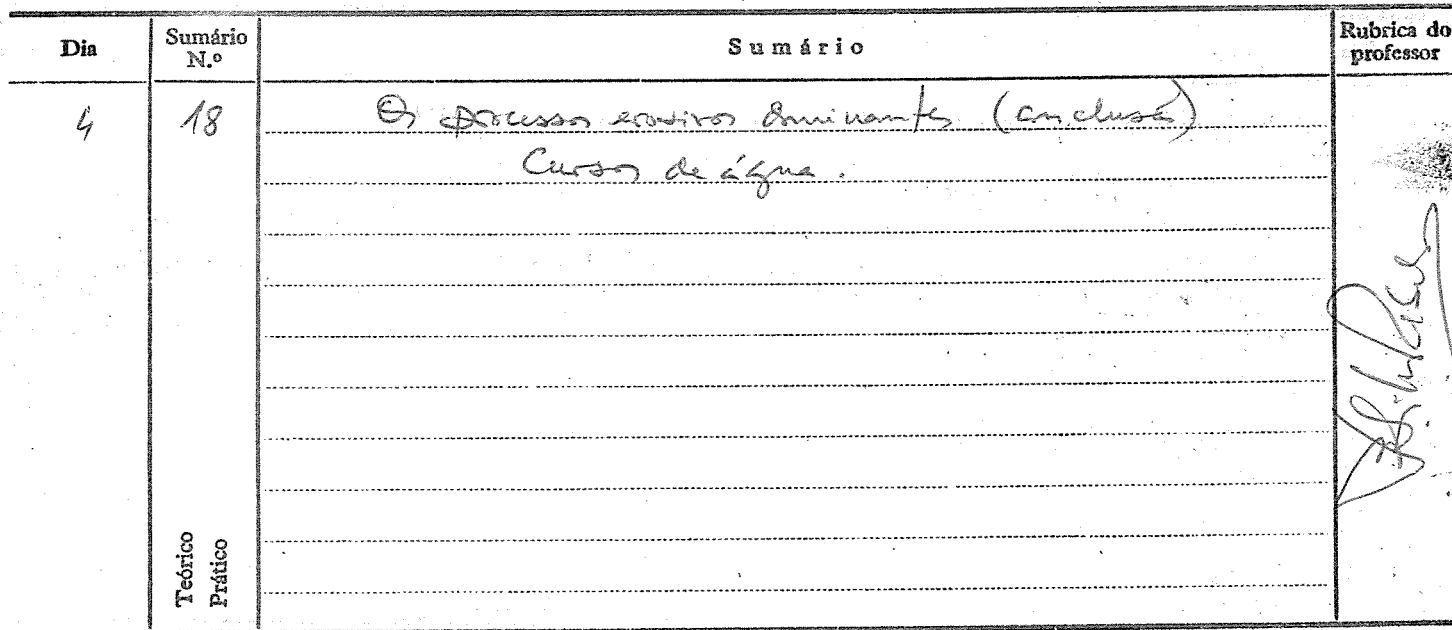 Dia
Sumário N.º
Sumário
Rubrica do professor
4
18
Os processos erosivos dominantes (conclusão)
Cursos de água.
Teórico
Prático